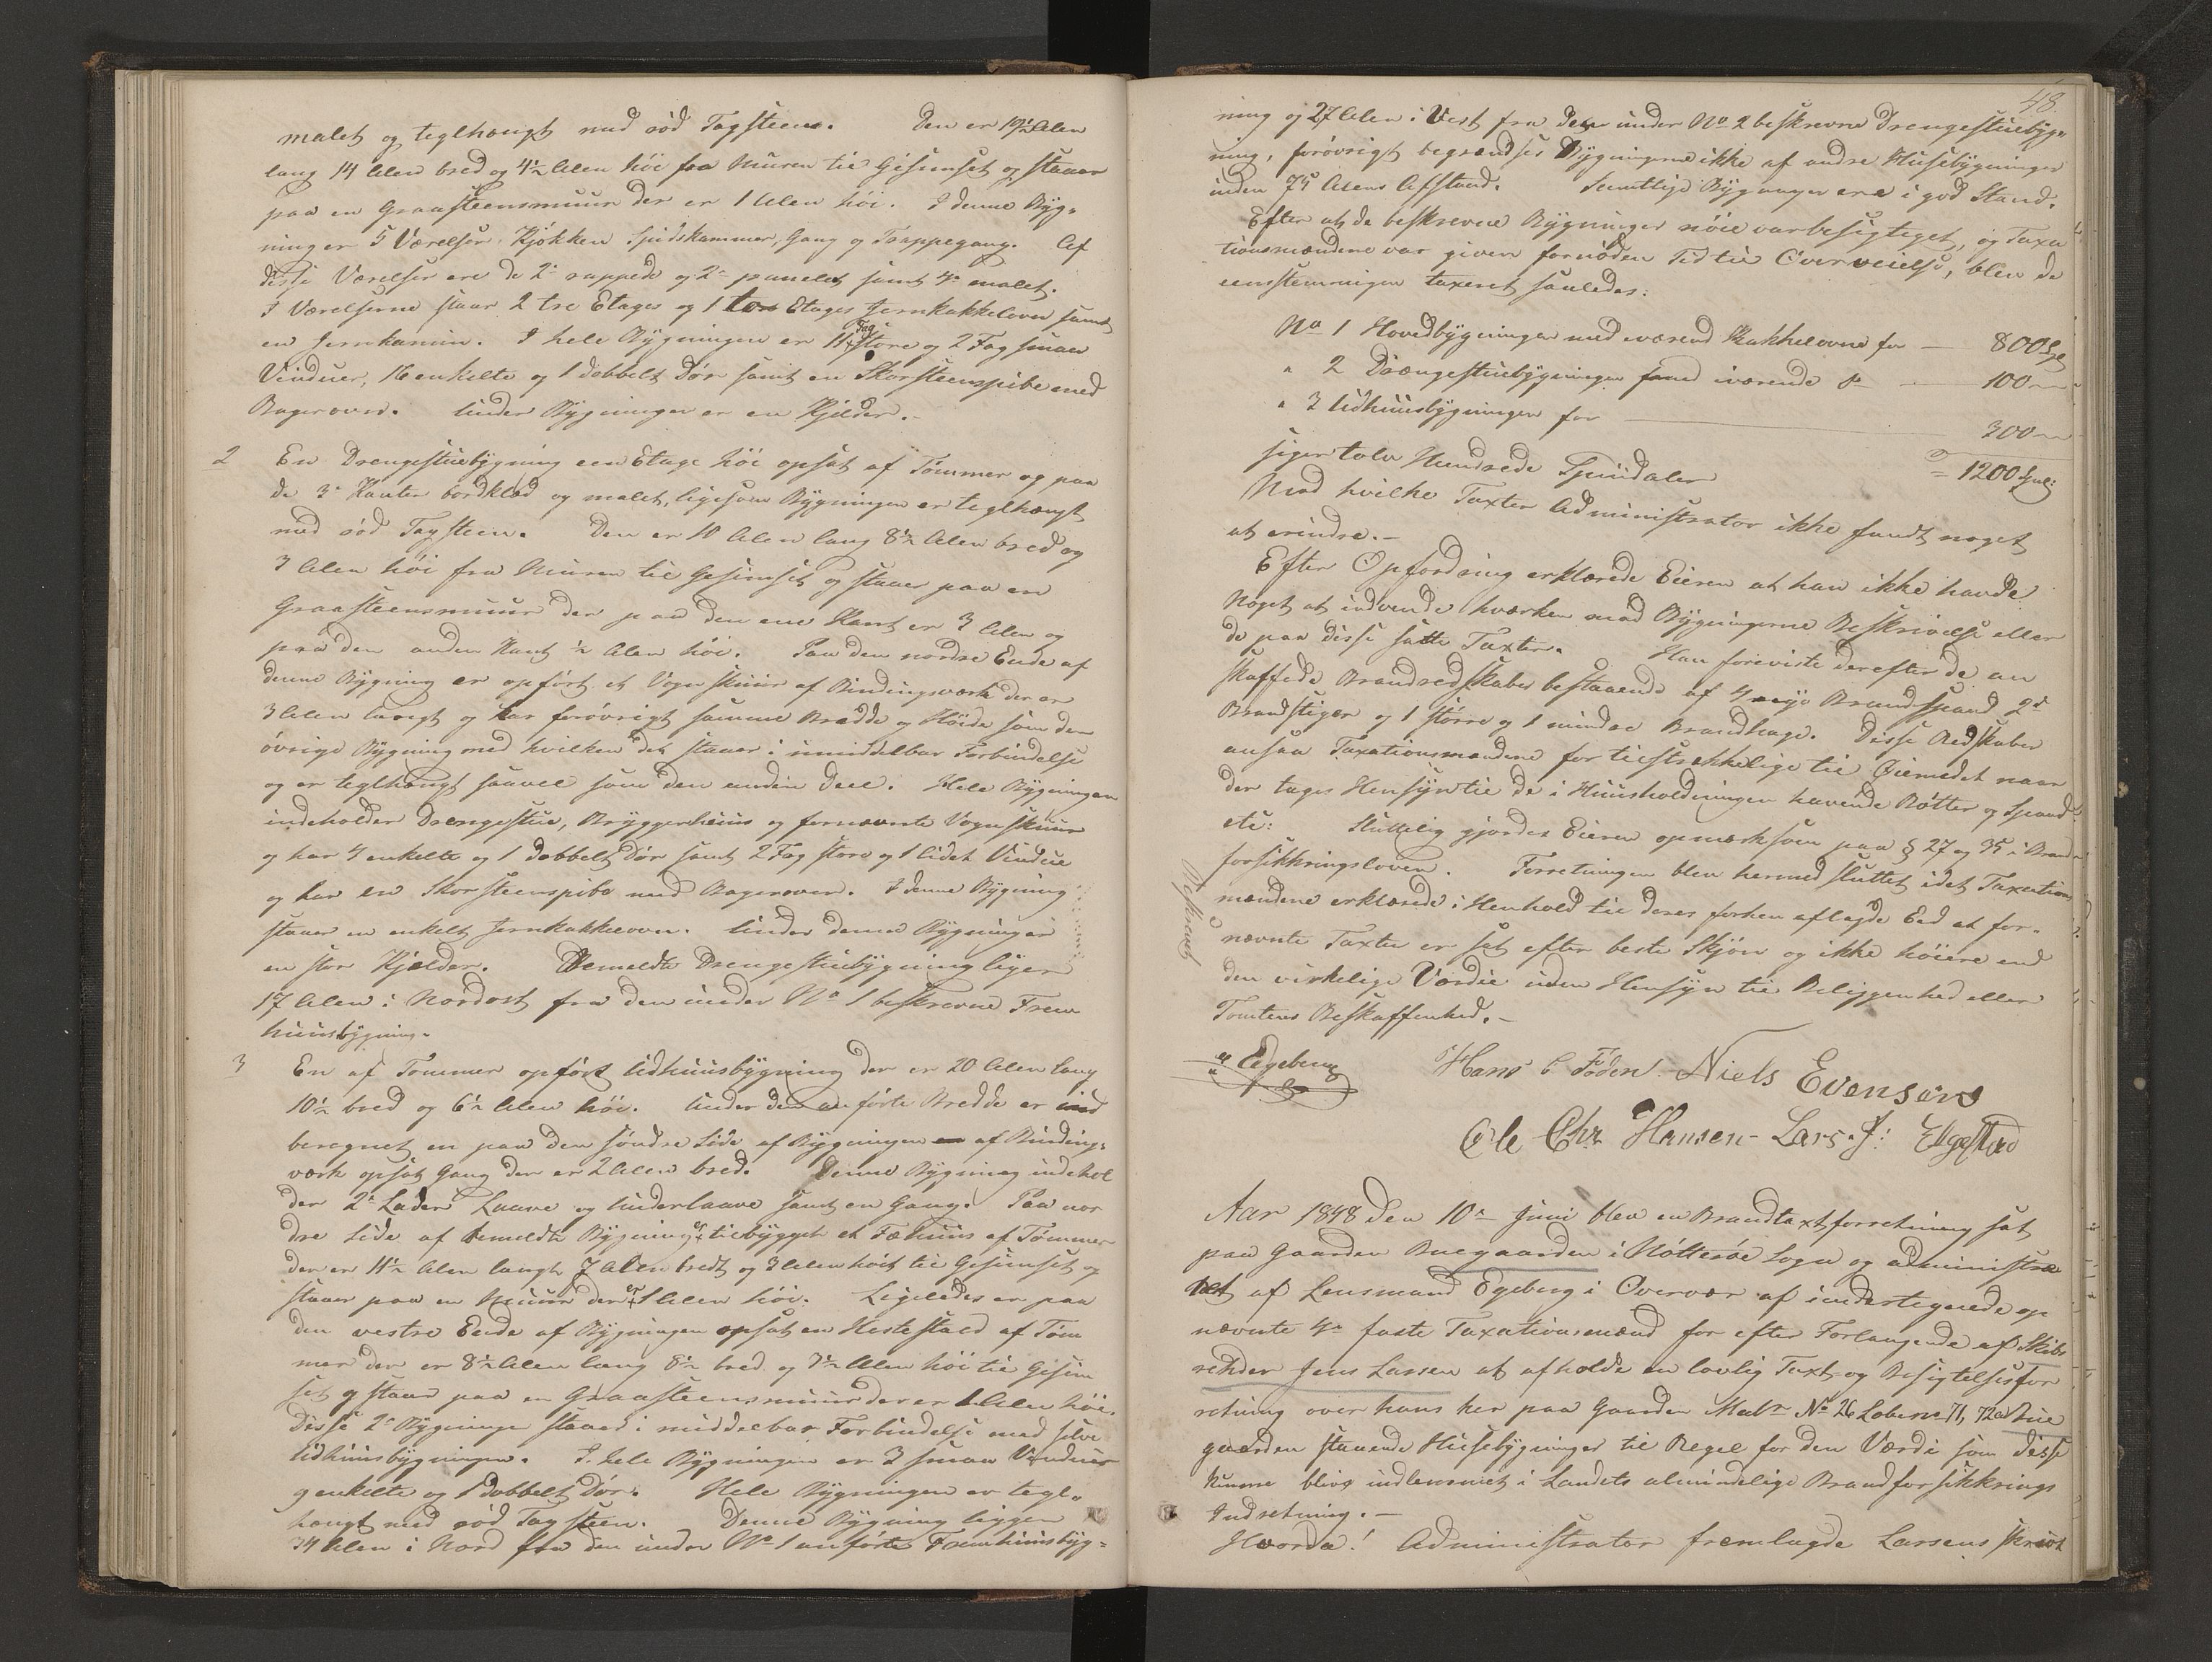 malet og teglhængt med rød Tagsteen. Den er 19½ Alen
lang 14 Alen bred og 4½ Alen høi fra Muren til Gesimset og staaer
paa en Graasteensmuur der er 1 Alen høi. I denne Byg-
ning er 5 Værelser Kjøkken Spidskammer, Gang og Trappegang. Af
disse Værelser ere de 2de rappede og 2de panelet samt 4re malet.
I Værelserne staar 2 tre Etages og 1 to Etages Jernkakkelovn samt
en Jernkamin. I hele Bygningen er 11 Fag store og 2 Fag smaae
Vinduer, 16 enkelte og 1 dobbelt Dør samt en Skorsteenspibe med
Bagerovn. Under Bygningen er en Kjelder.-
2 En Drengestuebygning een Etage høi opsat af Tømmer og paa
de 3de Kanter bordklæd og malet, ligesom Bygningen er teglhængt
med rød Tagsteen. Den er 10 Alen lang 8½ Alen bred og
3 Alen høi fra Muren til Gesimset og staaer paa en
Graasteensmuur der paa den ene Kant er 3 Alen og
paa den anden Kant ½ Alen høi. Paa den nordre Ende af
denne Bygning er opført et Vognskuur af Bindingsværk der er
3 Alen langt og har forøvrigt samme Bredde og Høide som den
øvrige Bygning med hvilken det staaer i umiddelbar Forbindelse
og er teglhængt saavel som den anden Deel. Hele Bygningen
indeholder Drengestue, Bryggerhuus og fornævnte Vognskuur
og har 4 enkelte og 1 dobbelt Dør samt 2 Fag store og 1 lidet Vindue
og har en Skorsteenspibe med Bagerovn. I denne Bygning
staaer en enkelt Jernkakkelovn. Under denne Bygning er
en stor Kjelder. Bemeldte Drengestuebygning liger
17 Alen i Nordost fra den under No 1 beskrevne Frem
huusbygning.
3 En af Tømmer opført Udhuusbygning der er 20 Alen lang
10½ bred og 6½ Alen høi. Under den anførte Bredde er ind
beregnet en paa den søndre Side af Bygningen af Binding-
værk opsat Gang der er 2 Alen bred. Denne Bygning indehol
der 2de Lader Laave og Underlaave samt en Gang. Paa nor
dre Side af bemeldte Bygning er tilbygget et Fæhuus af Tømmer
der er 11½ Alen langt 7 Alen bredt og 3 Alen høit til Gesimset og
staaer paa en Muur der er 1 Alen høi. Ligeledes er paa
den vestre Ende af Bygningen opsat en Hestestald af Tøm
mer der er 8½ Alen lang 8½ bred og 3½ Alen høi til Gesim
set og staaer paa en Graasteensmuur der er 1 Alen høi.
Disse 2de Bygninge staaer i middelbar Forbindelse med selve
Udhuusbygningen. I hele Bygningen er 3 smaa Vinduer
9 enkelte og 1 dobbelt Dør. Hele Bygningen er tegl-
hængt med rød Tagsteen. Denne Bygning ligger
34 Alen i Nord fra den under No 1 anførte Fremhuusbyg-
48.
ning og 27 Alen i Vest fra den under No 2 beskrevne Drengestuebyg-
ning, forøvrigt begrændses Bygningerne ikke af andre Husebygninger
inden 75 Alens Afstand. Samtlige Bygninger ere i god Stand.
Efter at de beskrevne Bygninger nøie var besigtiget, og Taxa
tionsmændene var given fornøden Tid til Overveielse, blev de
eenstemmigen taxeret saaledes:
No 1 Hovedbygningen med iværend Kakkelovne for — 800 Spd
" 2 Drengestuebygningen med iværende do — 100 —
" 3 Udhuusbygningen for — 300 —
siger tolv Hundrede Speciedaler = 1200 Spd:
Mod hvilke Taxter Administrator ikke fandt noget
at erindre.-
Efter Opfordring erklærede Eieren at han ikke havde
Noget at indvende hverken mod Bygningerne Beskrivelse eller
de paa disse satte Taxter. Han foreviste derefter de an
skaffede Brandredskaber bestaaende af 4 nye Brandspand 2de
Brandstiger og 1 større og 1 mindre Brandhage. Disse Redskaber
ansaa Taxationsmændene for tilstrækkelige til Øiemedet naar
der tages Hensyn til de i Huusholdningen havende Bøtter og Spand
etc: Sluttelig gjordes Eieren opmærksom paa § 27 og 35 i Brand
forsikkringsloven. Forretningen blev hermed sluttet idet Taxations
mændene erklærede i Henhold til deres forhen aflagde Eed at for-
nævnte Taxter er sat efter beste Skjøn og ikke høiere end
den virkelige Værdie uden Hensyn til Beliggenhed eller
Tomtens Beskaffenhed.-
Beskrevet
Egeberg Hans C Føden Niels Evensen
Ole Chr Hansen - Lars J: Elgestad
Aar 1848 den 10de Juni blev en Brandtaxtforretning sat
paa Gaarden Buegaarden i Nøtterøe Sogn og administre
ret af Lensmand Egeberg i Overvær af undertegnede op
nævnte 4re faste Taxationsmænd for efter Forlangende af Skibs
rehder Jens Larsen at afholde en lovlig Taxt og Besigtelsesfor
retning over hans her paa Gaarden Matr No 26 Løbenr 71, 72 Bue
gaarden staaende Husebygninger til Regel for den Værdi som disse
kunne blive indlemmet i Landets almindelige Brandforsikkrings
Indretning.-
Hvorda! Administrator fremlagde Larsens skrivt